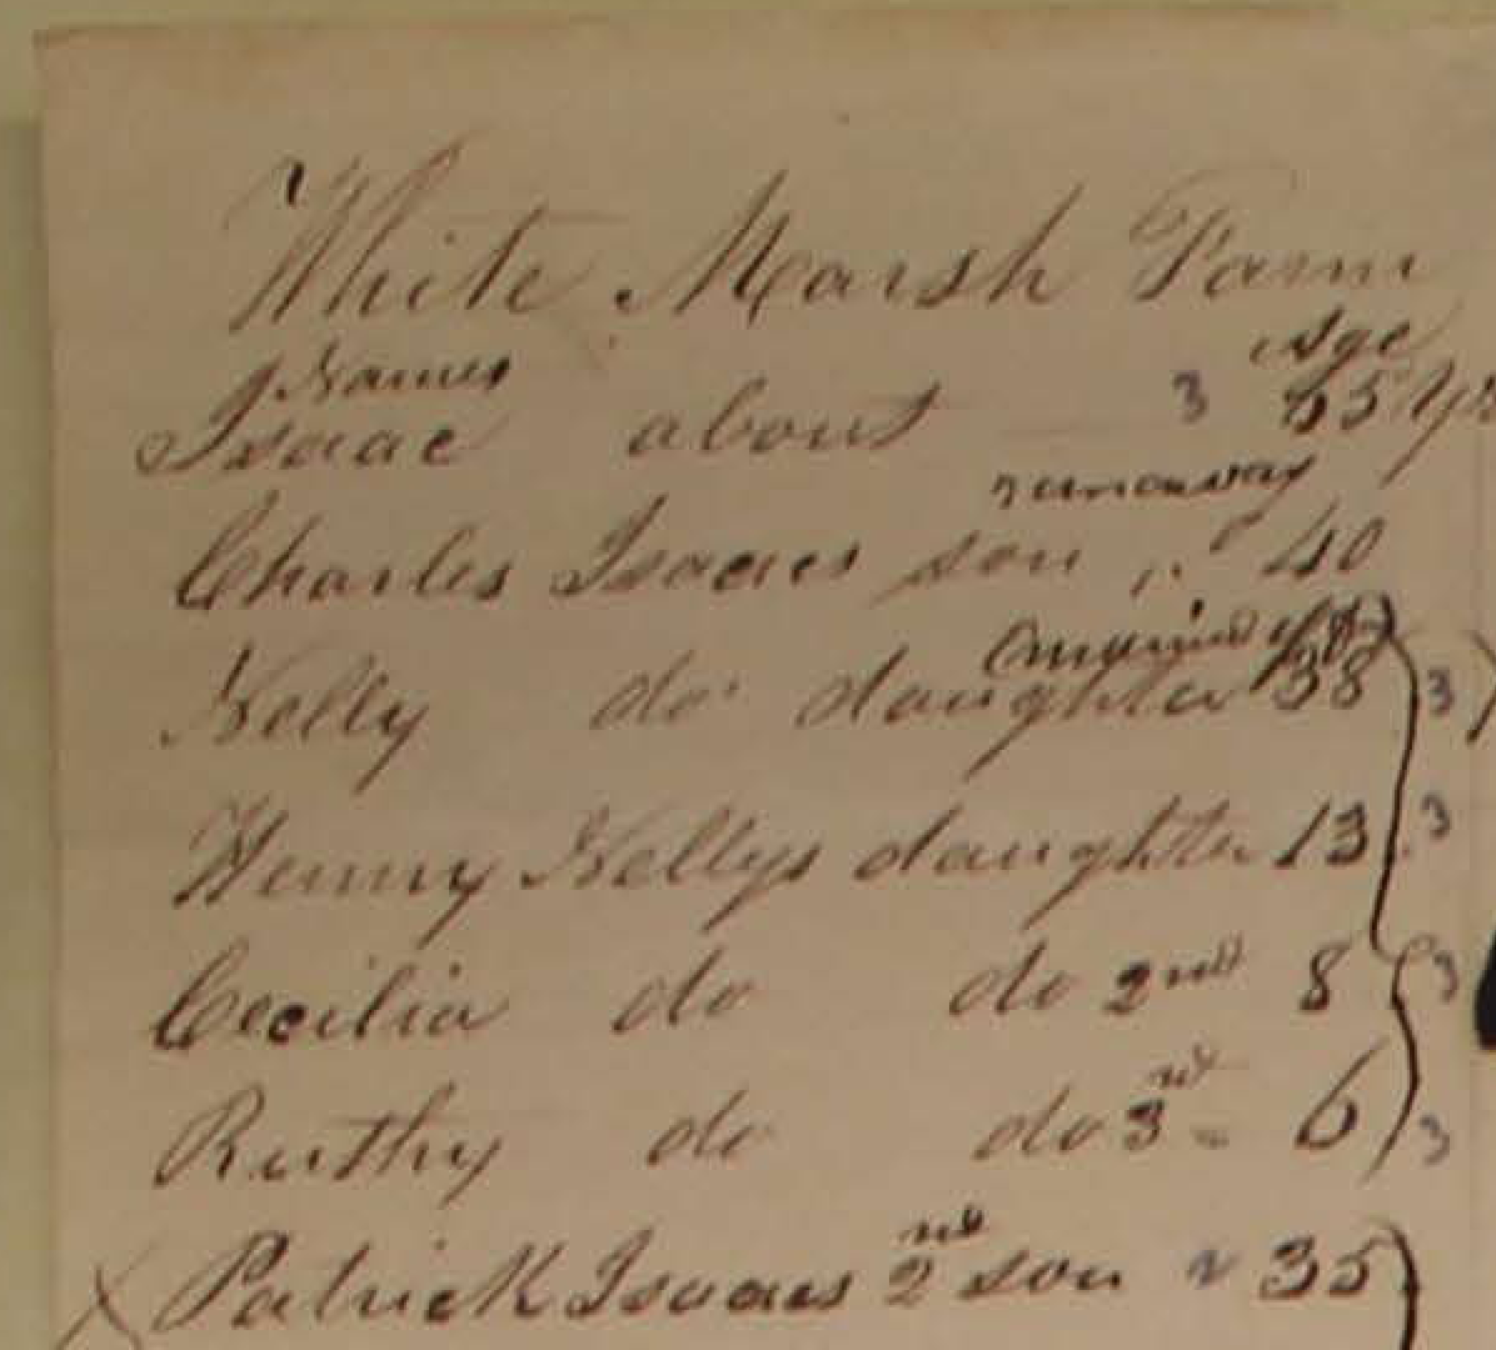 White Marsh Farm
Names Age
Isaac about 3 65 yrs
runaway
Charles Isaacs son 40
Nelly do daughter 38 3
Henny Nellys daughter 13 3
Cecilia do do 2nd 8 3
Ruthy do do 3rd 6 3
Patrick Isaacs 2nd son 35